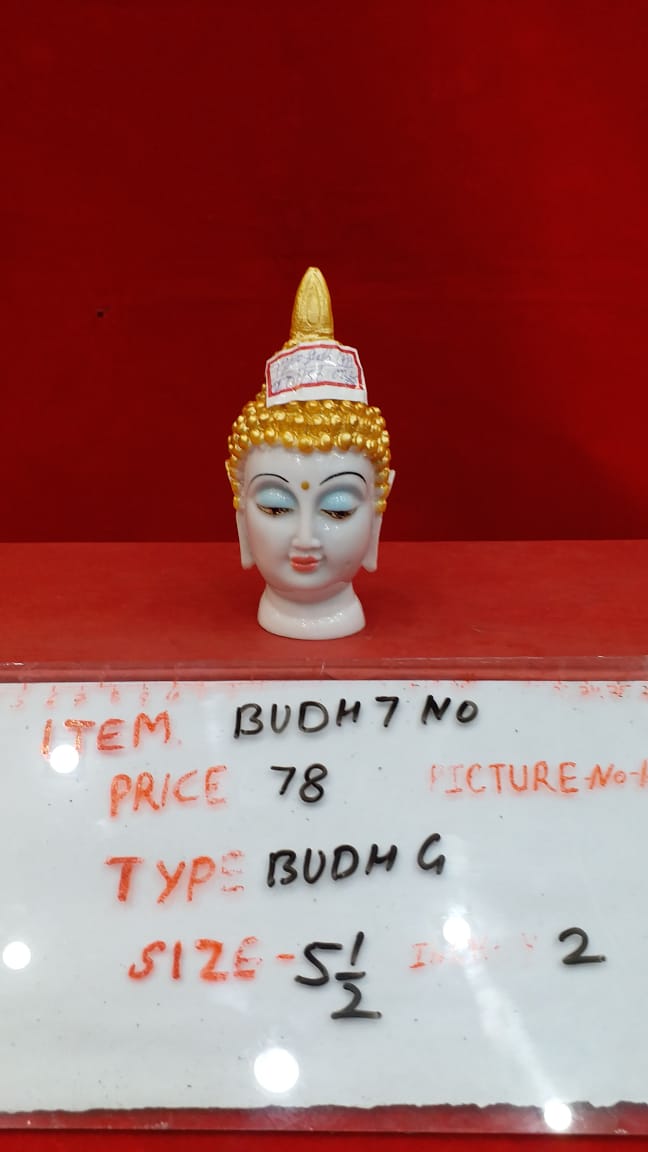 ITEM. BUDH 7 NO
PRICE 78 PICTURE-NO-1
TYPE BUDH G
SIZE - 5 1/2 2